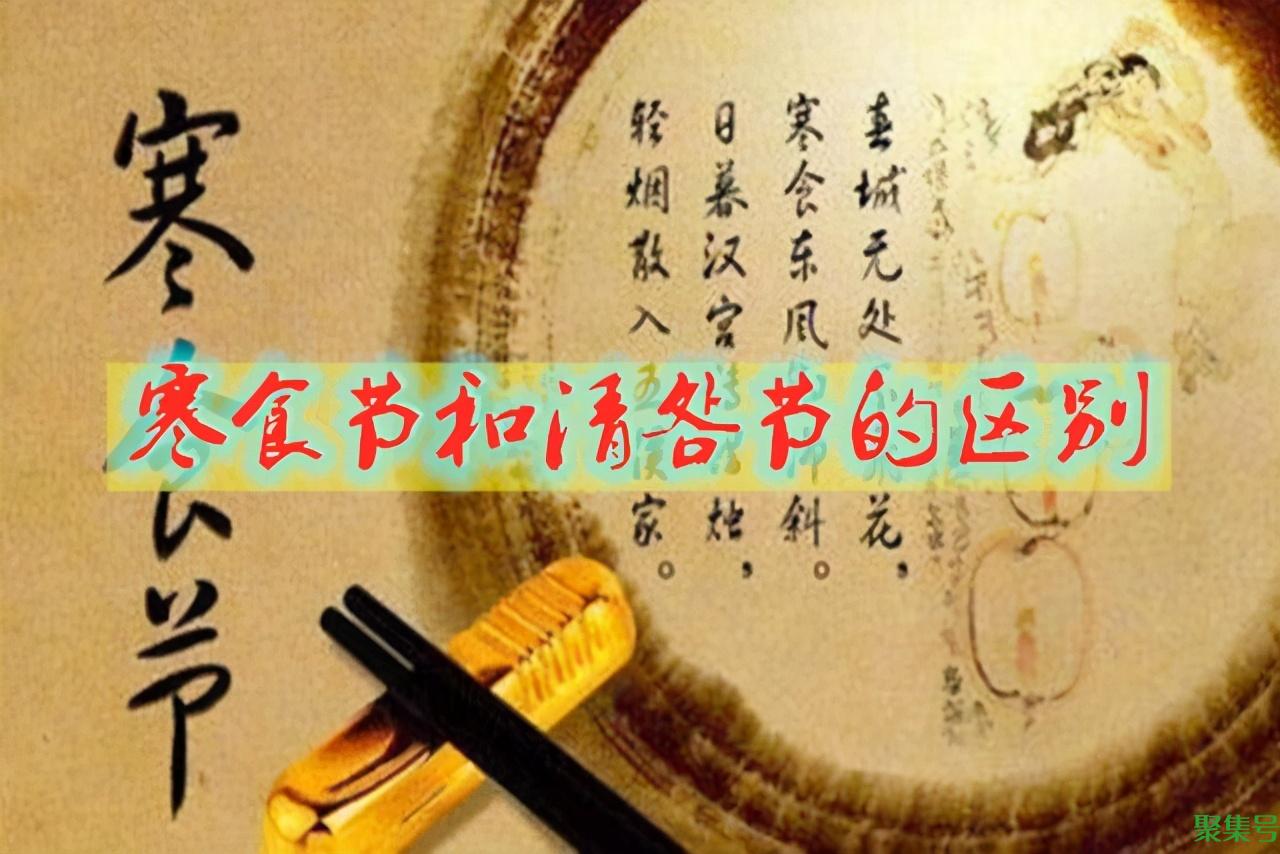 寒食节
春城无处花，
寒食东风斜。
日暮汉宫烛，
轻烟散入五侯家。
寒食节和清咎节的区别
聚集号